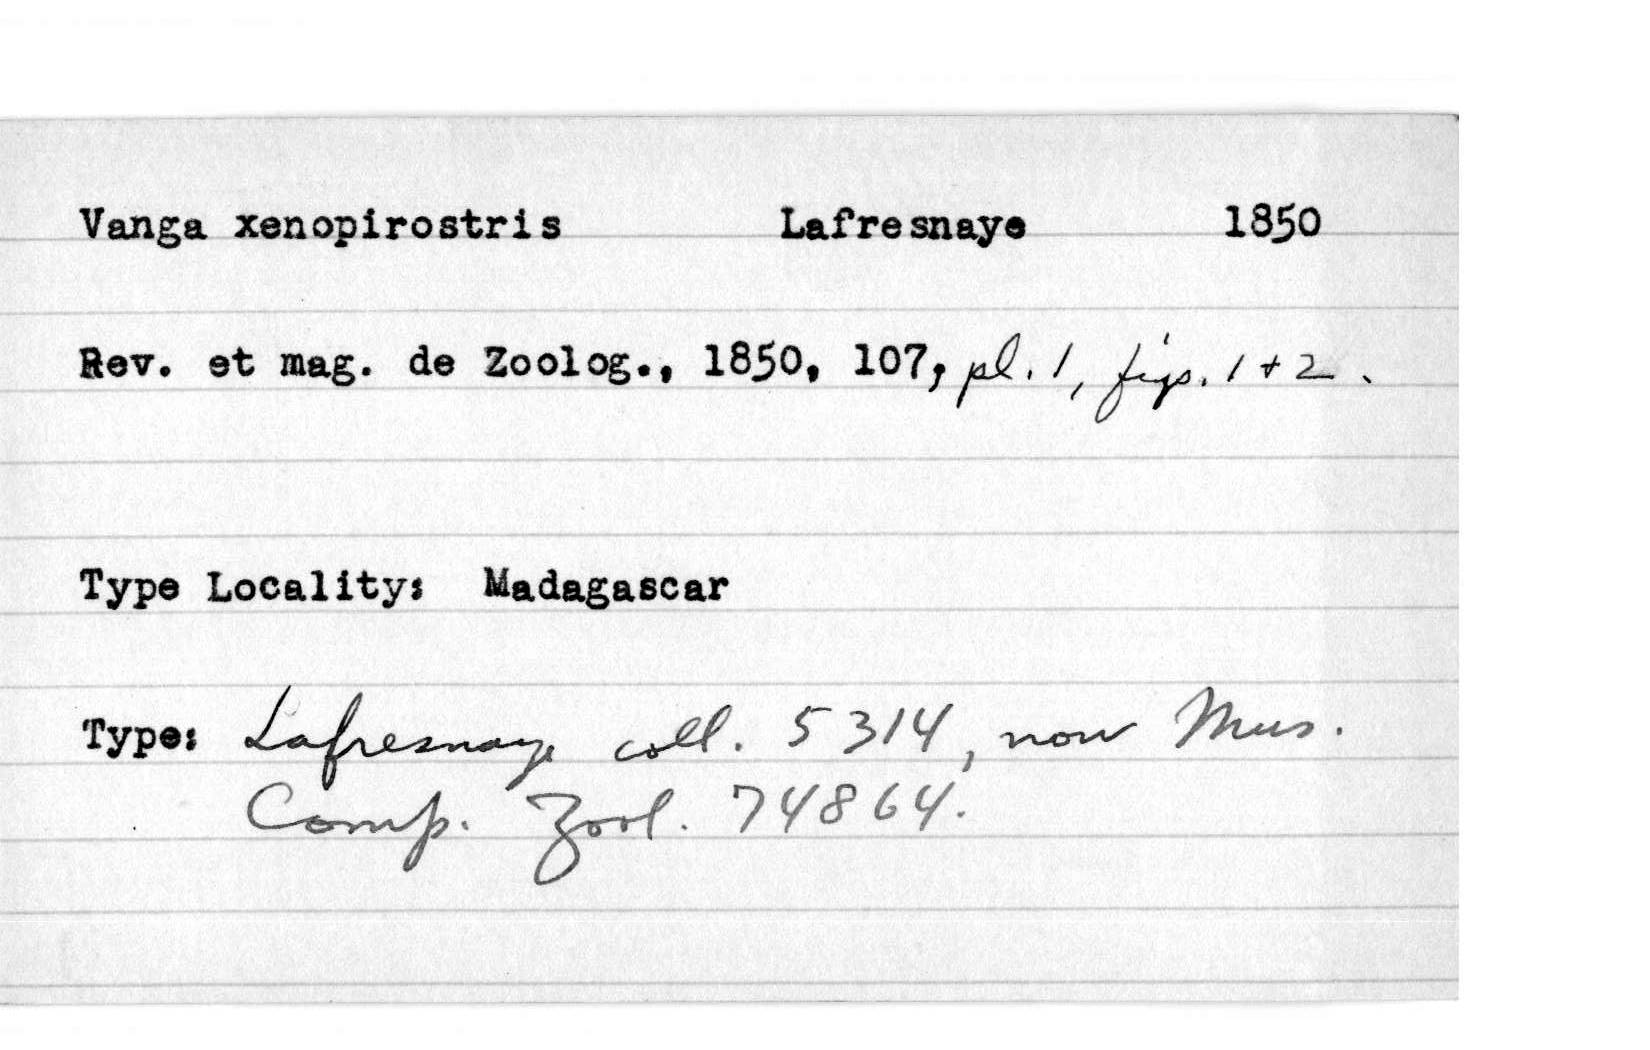 Vanga xenopirostris Lafresnaye 1850
Rev. et mag. de Zoolog., 1850, 107, pl. 1, figs. 1 + 2.
Type Locality: Madagascar
Type: Lafresnaye coll. 5314, now Mus.
Comp. Zool. 74864.